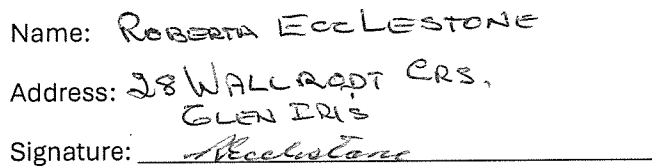 Name: ROBERTA ECCLESTONE
Address: 28 WALLRODT CRS,
GLEN IRIS
Signature: REcclestone